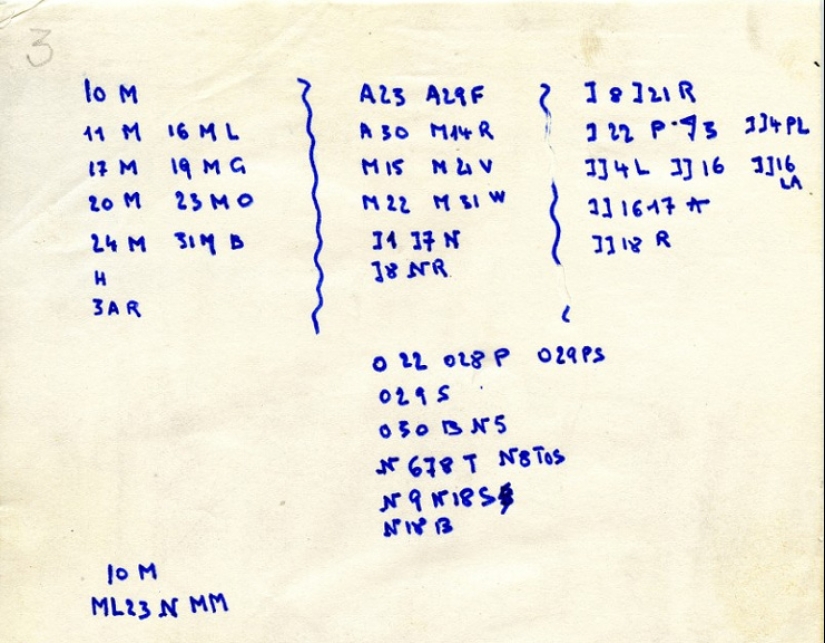 3
10 M
11 M 16 M L
17 M 19 M G
20 M 23 M O
24 M 31 M B
H
3 A R
A23 A29 F
A 30 M14 R
M15 M 21 V
M22 M 31 W
J1 J7 N
J8 NR
J 8 J21 R
J 22 P JJ4PL
JJ4 L JJ 16 JJ16
LA
JJ 16 17 A
JJ18 R
O 22 O28 P O29PS
O29 S
O30 B N5
N 678 T N8 TOS
N 9 N18 S
N18 B
10 M
ML23 N MM